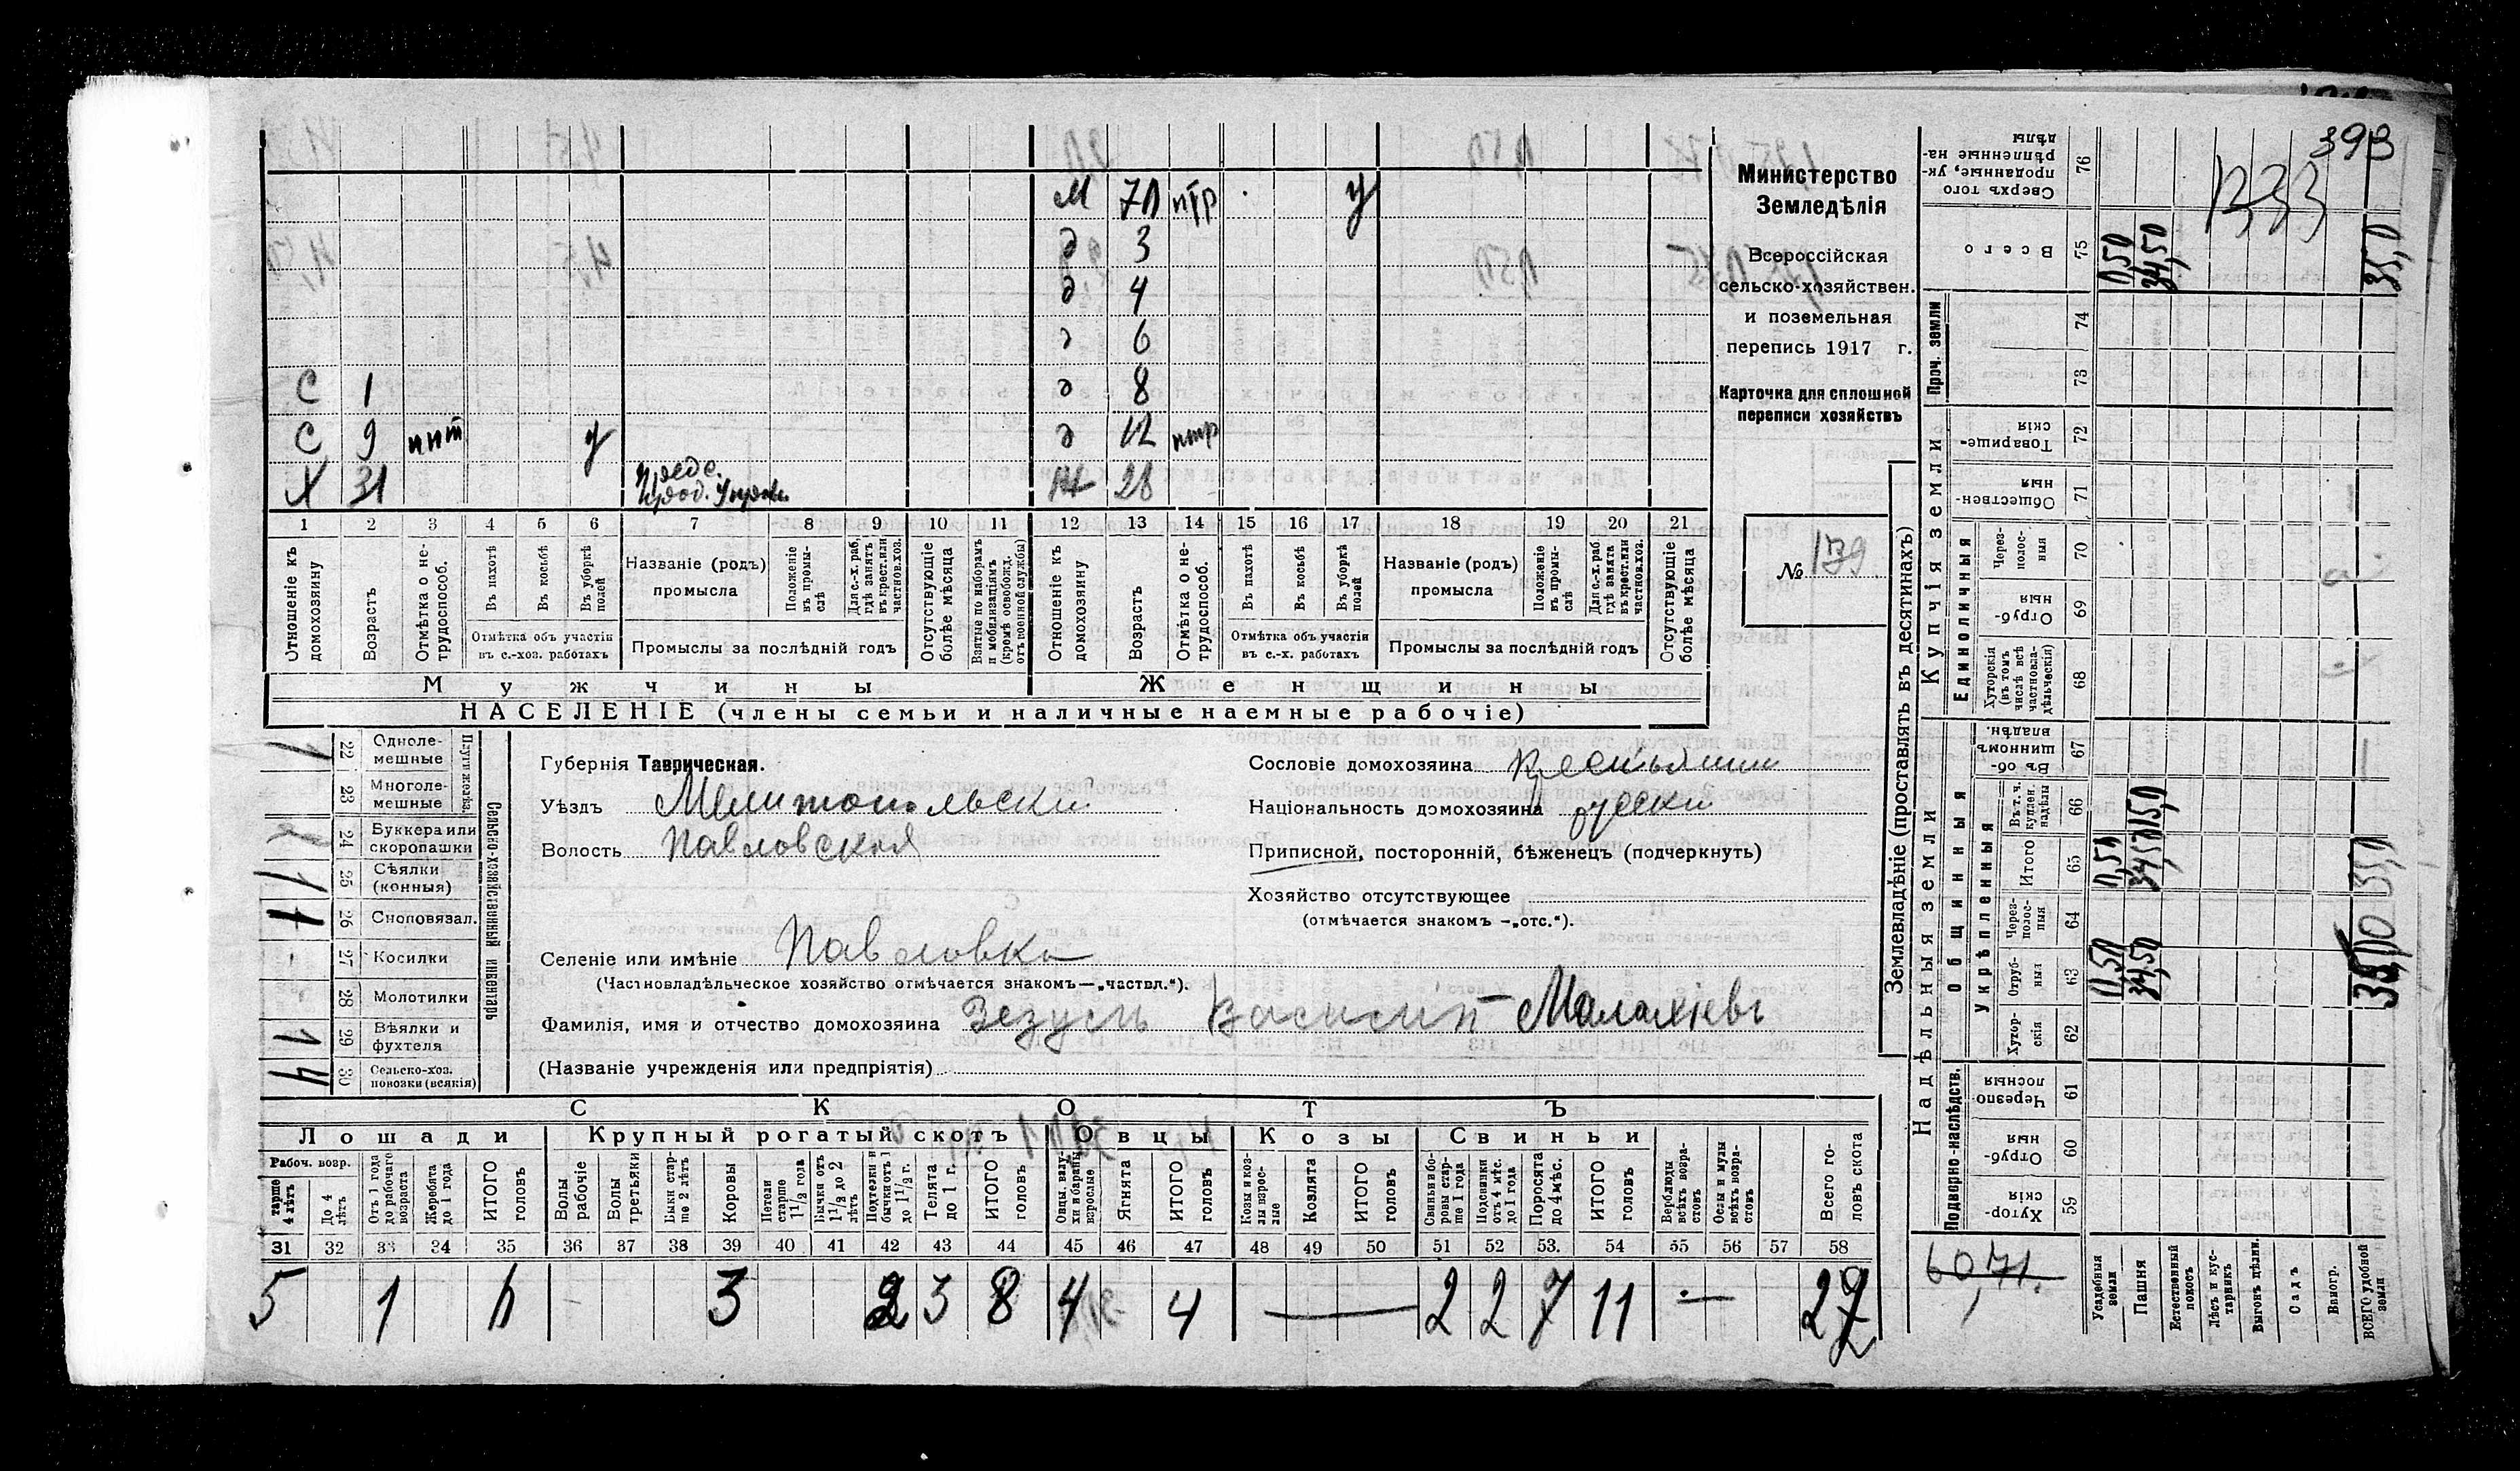 393
133
М 70 нтр у
д 3
д 4
д 6
С 1 д 8
С 9 нпт у д 12 нтр
Х 31 Предс. прод. Управ. Ж 28
1 2 3 4 5 6 7 8 9 10 11 12 13 14 15 16 17 18 19 20 21
Отношеніе къ домохозяину
Возрастъ
Отмѣтка о не-трудоспособ.
Въ пахотѣ
Въ косьбѣ
Въ уборкѣ полей
Отмѣтка объ участіи въ с.-хоз. работахъ
Названіе (родъ) промысла
Положеніе въ промы-слѣ
Для с.-х. раб, гдѣ занятъ въ крест. или частнов. хоз.
Промыслы за послѣдній годъ
Отсутствующіе болѣе мѣсяца
Взятые по наборамъ и мобилизаціямъ (кромѣ освобожд. отъ военной службы)
Отношеніе къ домохозяину
Возрастъ
Отмѣтка о не-трудоспособ.
Въ пахотѣ
Въ косьбѣ
Въ уборкѣ полей
Отмѣтка объ участіи въ с.-х. работахъ
Названіе (родъ) промысла
Положеніе въ промы-слѣ
Для с.-х. раб гдѣ занята въ крест. или частнов. хоз.
Промыслы за послѣдній годъ
Отсутствующіе болѣе мѣсяца
Мужчины Женщины
НАСЕЛЕНІЕ (члены семьи и наличные наемные рабочіе)
Министерство
Земледѣлія
Всероссійская
сельско-хозяйствен.
и поземельная
перепись 1917 г.
Карточка для сплошной
переписи хозяйствъ
№ 139
Сельско-хозяйственный инвентарь
22 Одноле-мешные 1
23 Многоле-мешные
24 Буккера или скоропашки 1
25 Сѣялки (конныя) 1
26 Сноповязал. 1
27 Косилки -
28 Молотилки -
29 Вѣялки и фухтеля 1
30 Сельско-хоз. повозки (всякія) 4
Губернія Таврическая.
Уѣздъ Мелитопольски
Волость Павловская
Селеніе или имѣніе Павловка
(Частновладѣльческое хозяйство отмѣчается знакомъ—„частвл.“).
Фамилія, имя и отчество домохозяина Зезуль Василий Малахіевъ
(Названіе учрежденія или предпріятія)
Сословіе домохозяина Крестьянин
Національность домохозяина руски
Приписной, посторонній, бѣженецъ (подчеркнуть)
Хозяйство отсутствующее
(отмѣчается знакомъ —„отс.“).
СКОТЪ
Лошади Крупный рогатый скотъ Овцы Козы Свиньи
Рабоч. возр.
тарше 4 лѣтъ
До 4 лѣтъ
Отъ 1 года до рабочаго возраста
Жеребята до 1 года
ИТОГО головъ
Волы рабочіе
Волы третьяки
Быки стар-ше 2 лѣтъ
Коровы
Нетели старше 1 1/2 года
Бычки отъ 1 1/2 до 2 лѣтъ
Подтелки и бычки отъ 1 до 1 1/2 г.
Телята до 1 г.
ИТОГО головъ
Овцы, валу-хи и бараны взрослые
Ягнята
ИТОГО головъ
Козы и коз-лы взрос-лые
Козлята
ИТОГО головъ
Свиньи и бо-ровы стар-ше 1 года
Подсвинки отъ 4 мѣс. до 1 года
Поросята до 4 мѣс.
ИТОГО головъ
Верблюды всѣхъ возра-стовъ
Ослы и мулы всѣхъ возра-стовъ
Всего го-ловъ скота
31 32 33 34 35 36 37 38 39 40 41 42 43 44 45 46 47 48 49 50 51 52 53. 54 55 56 57 58
5 1 6 - 3 2 3 8 4 4 — 2 2 7 11 — 27
Землевладѣніе (проставлять въ десятинахъ)
Купчія земли
Надѣльныя земли
Сверхъ того проданные, ук-рѣпленные на-дѣлы 76
Всего 75 0,50 34,50 35,0
Проч. земли 74 73
Товарище-скія 72
Обществен-ныя 71
Единоличныя
Через-полос-ныя 70
Отруб-ныя 69
Хуторскія (въ томъ числѣ всѣ частновла-дѣльческія) 68
Общинныя
Въ об-шинномъ владѣн. 67
Укрѣпленныя
Въ т. ч. куплен. надѣлы 66 15,0
Итого 65 0,50 34,50 35,0
Через-полос-ныя 64
Отруб-ныя 63 0,50 34,50
Хутор-скія 62
Подворно-наслѣдств.
Черезпо-лосныя 61
Отруб-ныя 60
Хутор-скія 59
60,71.
Усадебныя земли
Пашня
Естественный покосъ
Лѣсъ и кус-тарникъ
Выгонъ цѣлин.
Садъ
Виногр.
ВСЕГО удобной земли